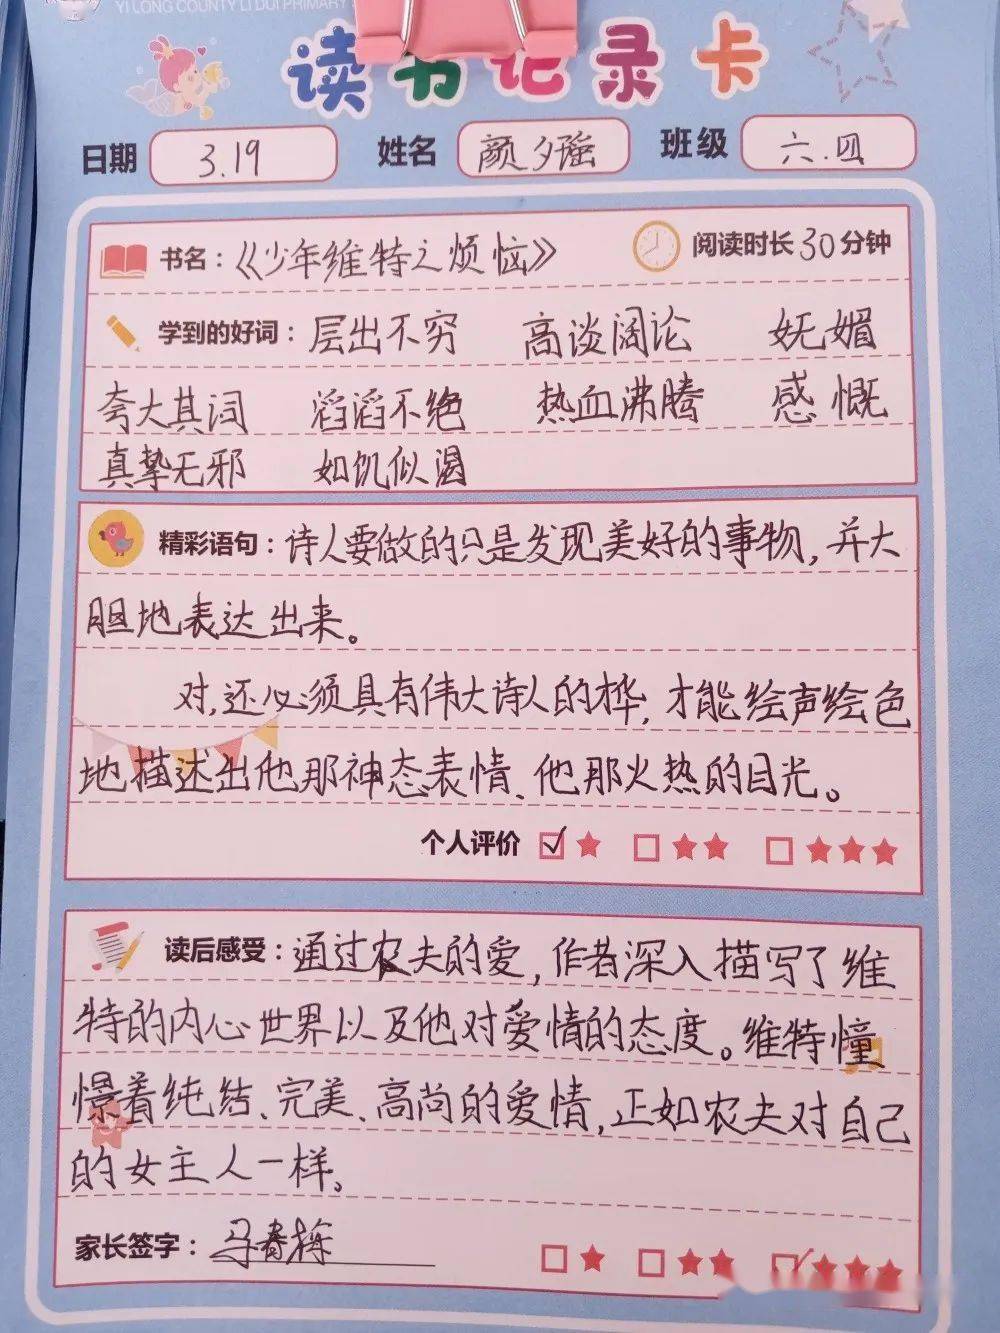 YI LONG COUNTY LI DUI PRIMARY
读书记录卡
日期 3.19 姓名 颜夕瑶 班级 六.四
书名：《少年维特之烦恼》 阅读时长30分钟
学到的好词：层出不穷 高谈阔论 妩媚
夸大其词 滔滔不绝 热血沸腾 感慨
真挚无邪 如饥似渴
精彩语句：诗人要做的只是发现美好的事物，并大
胆地表达出来。
对，还必须具有伟大诗人的桦，才能绘声绘色
地描述出他那神态表情、他那火热的目光。
个人评价
读后感受：通过农夫的爱，作者深入描写了维
特的内心世界以及他对爱情的态度。维特憧
憬着纯结、完美、高尚的爱情，正如农夫对自己
的女主人一样。
家长签字：马春栋